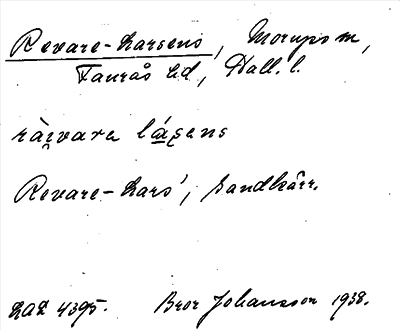 Revare-Larsens, Morups sn,
Faurås hd, Hall. l.
ràivara lásens
Revare-Lars', Sandkärr.
LAL 4395. Bror Johansson 1938.